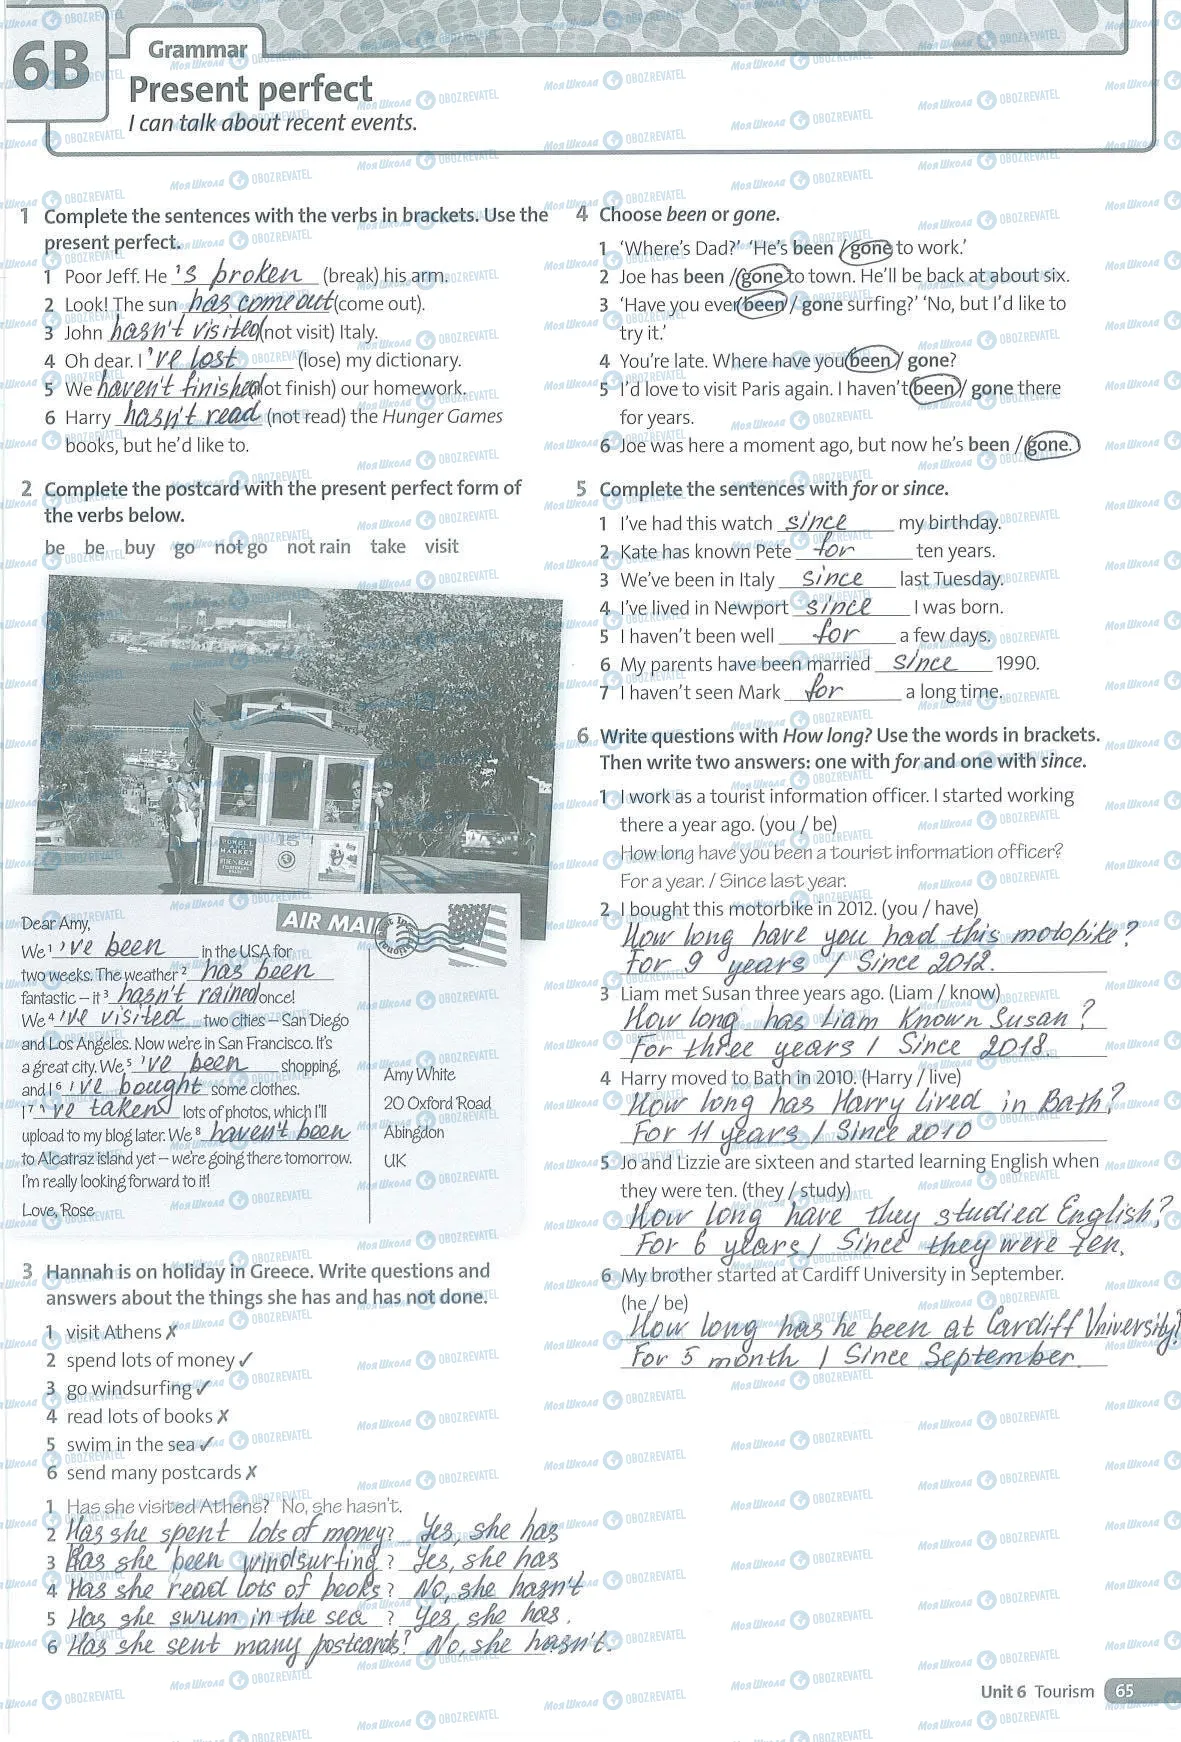 6B
Grammar
Present perfect
I can talk about recent events.
1 Complete the sentences with the verbs in brackets. Use the
present perfect.
1 Poor Jeff. He 's broken (break) his arm.
2 Look! The sun has come out (come out).
3 John hasn't visited (not visit) Italy.
4 Oh dear. I 've lost (lose) my dictionary.
5 We haven't finished (not finish) our homework.
6 Harry hasn't read (not read) the Hunger Games
books, but he'd like to.
2 Complete the postcard with the present perfect form of
the verbs below.
be be buy go not go not rain take visit
POWELL AND MARKET
15
AIR MAIL
Dear Amy,
We 1 've been in the USA for
two weeks. The weather 2 has been
fantastic – it 3 hasn't rained once!
We 4 've visited two cities – San Diego
and Los Angeles. Now we're in San Francisco. It's
a great city. We 5 've been shopping,
and I 6 've bought some clothes.
I 7 've taken lots of photos, which I'll
upload to my blog later. We 8 haven't been
to Alcatraz island yet – we're going there tomorrow.
I'm really looking forward to it!
Love, Rose
Amy White
20 Oxford Road
Abingdon
UK
3 Hannah is on holiday in Greece. Write questions and
answers about the things she has and has not done.
1 visit Athens ✗
2 spend lots of money ✓
3 go windsurfing ✓
4 read lots of books ✗
5 swim in the sea ✓
6 send many postcards ✗
1 Has she visited Athens? No, she hasn't.
2 Has she spent lots of money? Yes, she has
3 Has she been windsurfing? Yes, she has
4 Has she read lots of books? No, she hasn't
5 Has she swum in the sea? Yes, she has.
6 Has she sent many postcards? No, she hasn't.
4 Choose been or gone.
1 'Where's Dad?' 'He's been / gone to work.'
2 Joe has been / gone to town. He'll be back at about six.
3 'Have you ever been / gone surfing?' 'No, but I'd like to
try it.'
4 You're late. Where have you been / gone?
5 I'd love to visit Paris again. I haven't been / gone there
for years.
6 Joe was here a moment ago, but now he's been / gone.
5 Complete the sentences with for or since.
1 I've had this watch since my birthday.
2 Kate has known Pete for ten years.
3 We've been in Italy since last Tuesday.
4 I've lived in Newport since I was born.
5 I haven't been well for a few days.
6 My parents have been married since 1990.
7 I haven't seen Mark for a long time.
6 Write questions with How long? Use the words in brackets.
Then write two answers: one with for and one with since.
1 I work as a tourist information officer. I started working
there a year ago. (you / be)
How long have you been a tourist information officer?
For a year. / Since last year.
2 I bought this motorbike in 2012. (you / have)
How long have you had this motobike?
For 9 years / Since 2012.
3 Liam met Susan three years ago. (Liam / know)
How long has Liam Known Susan?
For three years / Since 2018.
4 Harry moved to Bath in 2010. (Harry / live)
How long has Harry lived in Bath?
For 11 years / Since 2010
5 Jo and Lizzie are sixteen and started learning English when
they were ten. (they / study)
How long have they studied English?
For 6 years / Since they were ten.
6 My brother started at Cardiff University in September.
(he / be)
How long has he been at Cardiff University?
For 5 month / Since September.
Unit 6 Tourism 65
Моя Школа OBOZREVATEL